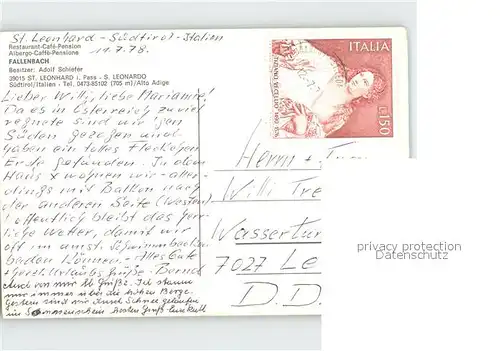 St. Leonhard - Südtirol - Italien
Restaurant-Café-Pension
11.7.78.
Albergo-Caffè-Pensione
FALLENBACH
Besitzer: Adolf Schiefer
39015 ST. LEONHARD i. Pass - S. LEONARDO
Südtirol/Italien - Tel. 0473-85102 (705 m)/Alto Adige
ITALIA
L.150
Lieber Willi, liebe Marianne!
Da es in Österreich zuviel
regnete sind wir gen
Süden gezogen und
haben ein tolles Fleckchen
Erde gefunden. In dem
Haus x wohnen wir - aller-
dings mit Balkon nach
der anderen Seite (Westen)
Hoffentlich bleibt das herr-
liche Wetter, damit wir
oft im Schwimmbecken
baden können. - Alles Gute
+ herzl. Urlaubs Grüße - Bernd
Auch von mir lb Grüße. Ich staune
nur immer über die hohen Berge.
Gestern sind wir durch Schnee gelaufen
im Sonnenschein
Herrn + Frau
Willi Tre
Wassertur
7027 Le
D.D.
privacy protection
Datenschutz